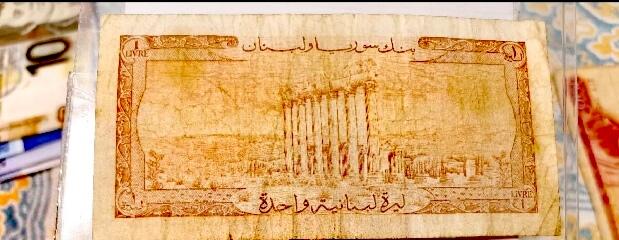 1
LIVRE
بنك سوريا ولبنان
١
ليرة لبنانية واحدة
LIVRE
10